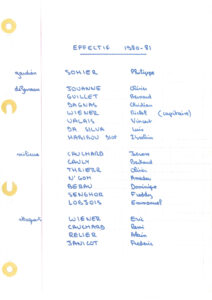 EFFECTIF 1980-81
gardien SOHIER Philippe
défenseurs JOUANNE Olivier
GUILLET Bernard
DAGNAS Christian
WIENER Michel (capitaine)
VALAIS Vincent
DA SILVA Luis
HABIBOU DIO
milieux CAUCHARD Jérôme
CAULY Bertrand
THRIERR Olivier
N'GOM Amadou
BEBAU Dominique
SENGHOR Freddy
LOBJOIS Emmanuel
attaquants WIENER Eric
CAUCHARD Rémi
RELIER Alain
JANICOT Frédéric